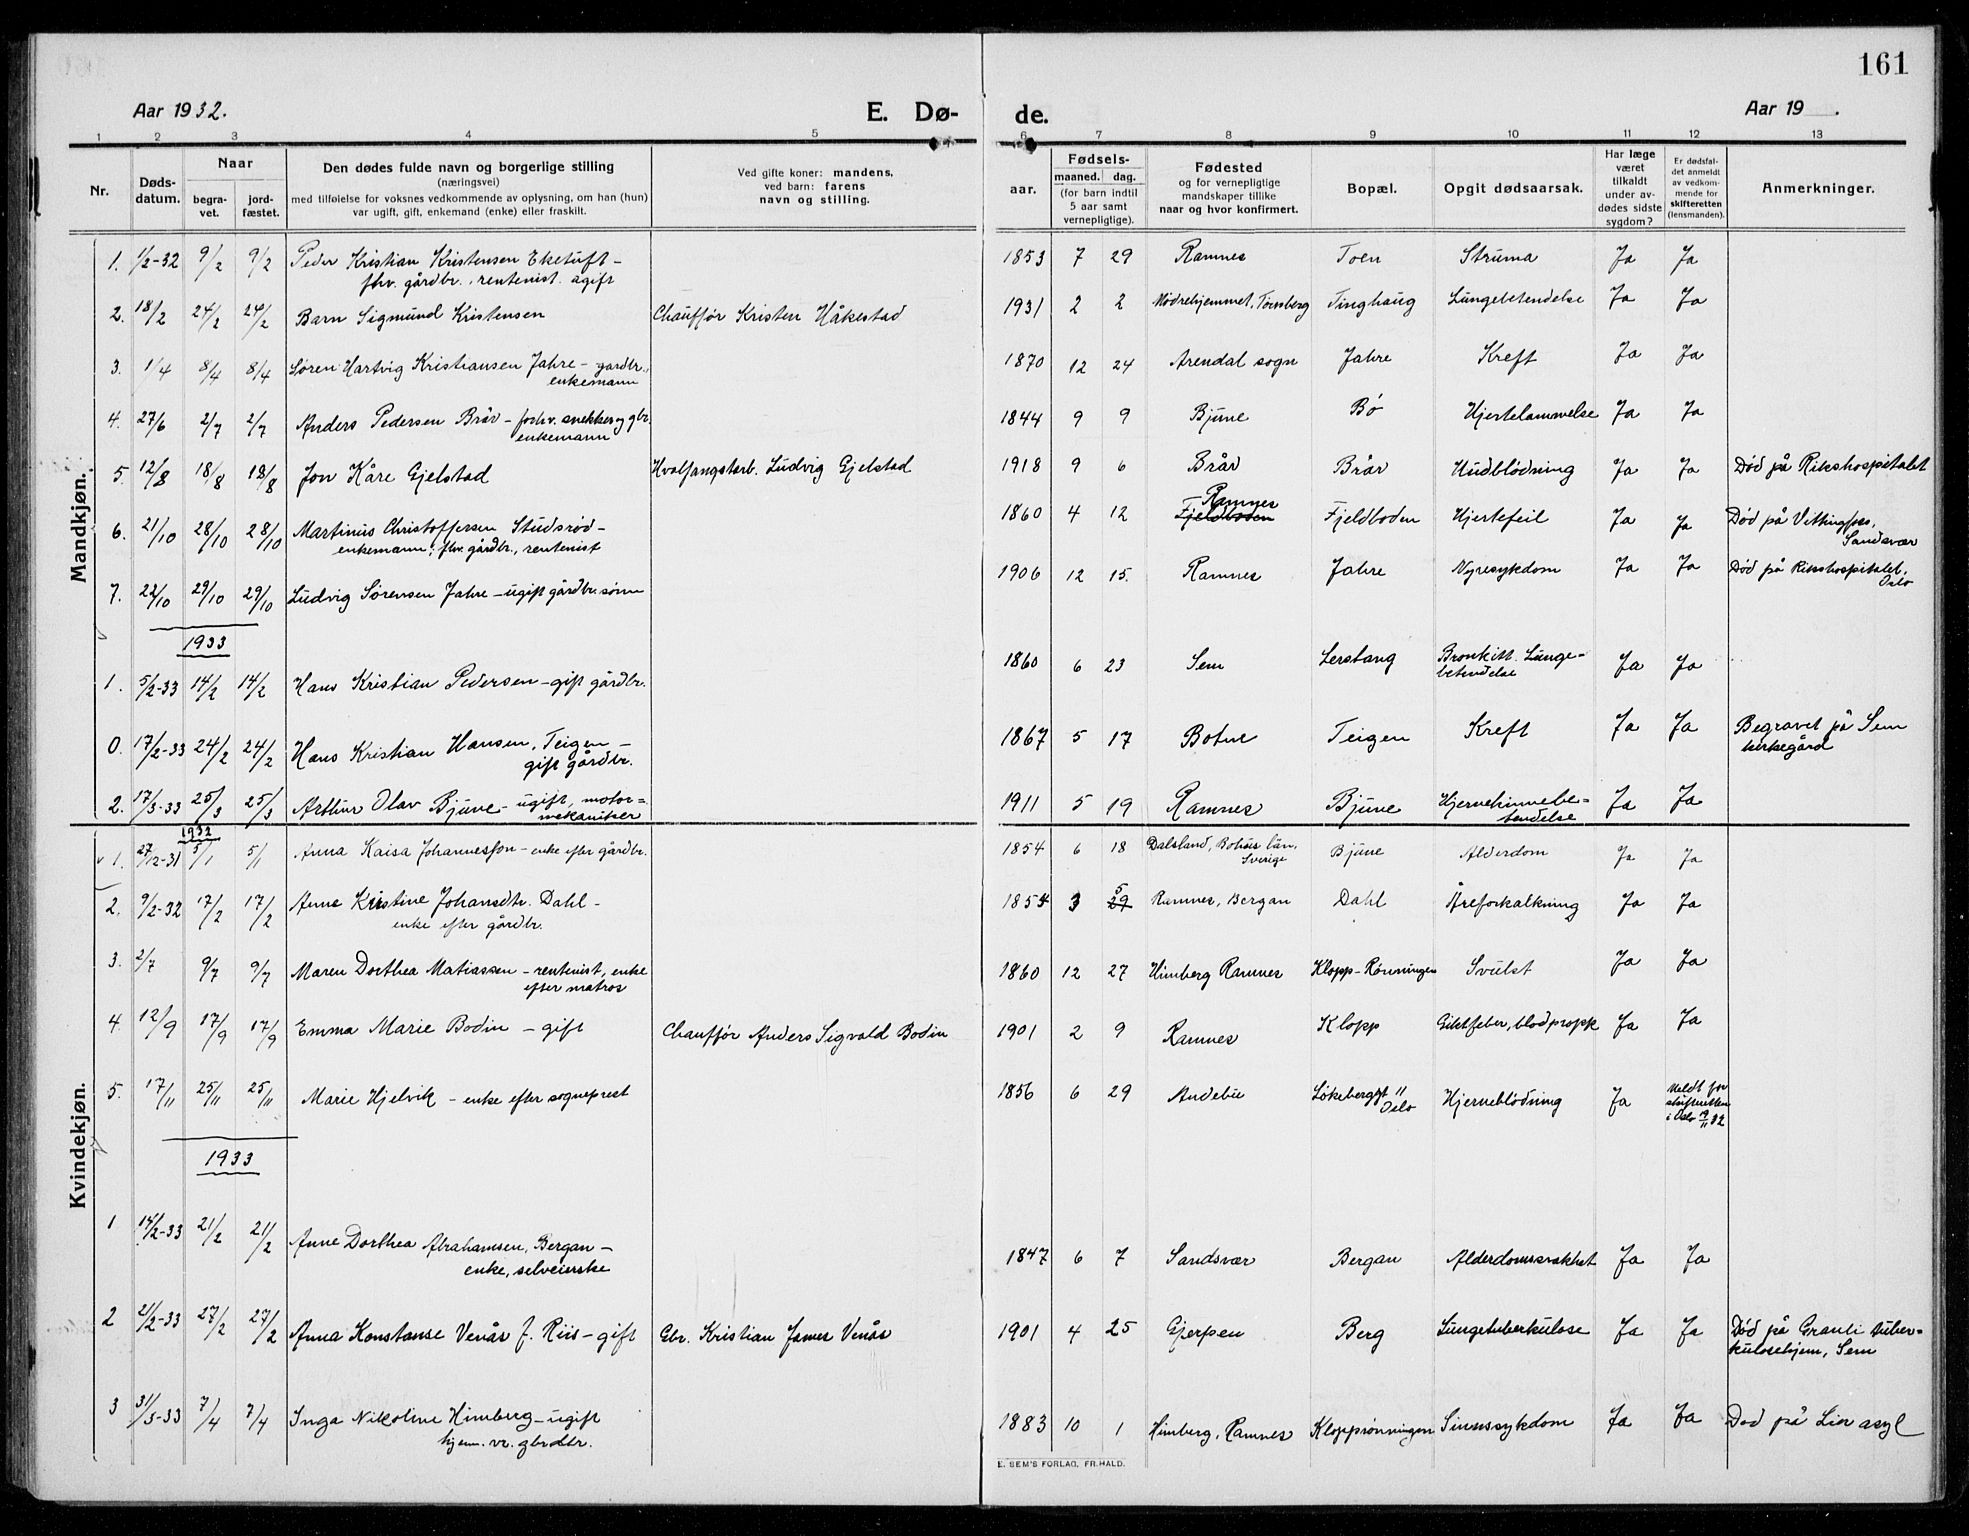 161
Aar 1932. E. Dø- de. Aar 19 .
1 2 3 4 5 6 7 8 9 10 11 12 13
Nr. Døds-datum. Naar begra-vet. jord-fæstet. Den dødes fulde navn og borgerlige stilling (næringsvei) med tilføielse for voksnes vedkommende av oplysning, om han (hun) var ugift, gift, enkemand (enke) eller fraskilt. Ved gifte koner: mandens, ved barn: farens navn og stilling. aar. Fødsels- maaned. dag. (for barn indtil 5 aar samt vernepligtige). Fødested og for vernepligtige mandskaper tillike naar og hvor konfirmert. Bopæl. Opgit dødsaarsak. Har læge været tilkaldt under av-dødes sidste sygdom? Er dødsfal-det anmeldt av vedkom-mende for skifteretten (lensmanden). Anmerkninger.
Mandkjøn.
1. 1/2-32 9/2 9/2 Peder Kristian Kristensen Eketuft - 1853 7 29 Ramnes Toen Struma Ja Ja
fhv. gårdbr., rentenist. ugift
2. 18/2 24/2 24/2 Barn Sigmund Kristensen Chauffør Kristen Håkestad 1931 2 2 Mødrehjemmet, Tønsberg Tinghaug Lungebetendelse Ja Ja
3. 1/4 8/4 8/4 Søren Hartvig Kristiansen Jahre - gårdbr., 1870 12 24 Arendal sogn Jahre Kreft Ja Ja
enkemann
4. 27/6 2/7 2/7 Anders Pedersen Brår - forhv. snekker og gbr. 1844 9 9 Bjune Bö Hjertelammelse Ja Ja
enkemann
5. 12/8 18/8 18/8 Jon Kåre Gjelstad Hvalfangstarb. Ludvig Gjelstad 1918 9 6 Brår Brår Hudblödning Ja Ja Död på Rikshospitalet
6. 21/10 28/10 28/10 Martinus Christoffersen Studsrød - 1860 4 12 Ramnes Fjeldboden Fjeldboden Hjertefeil Ja Ja Död på Vittingfoss,
enkemann, fhv. gårdbr., rentenist Sandsvær
7. 22/10 29/10 29/10 Ludvig Sørensen Jahre - ugift gårdbr. sönn 1906 12 15. Ramnes Jahre Nyresykdom Ja Ja Död på Rikshospitalet,
Oslo
1933
1. 5/2-33 14/2 14/2 Hans Kristian Pedersen - gift gårdbr. 1860 6 23 Sem Lerstang Bronkitt. Lunge=
betendelse Ja Ja
0. 17/2-33 24/2 24/2 Hans Kristian Hansen, Teigen - 1867 5 17 Botne Teigen Kreft Ja Ja Begravet på Sem
gift gårdbr. kirkegård
2. 17/3-33 25/3 25/3 Arthur Olav Bjune - ugift, motor= 1911 5 19 Ramnes Bjune Hjernehinnebe=
mekaniker tendelse Ja Ja
Kvindekjøn.
1932
1. 27/12-31 5/1 5/1 Anna Kaisa Johannesson - enke efter gårdbr. 1854 6 18 Dalsland, Bohus län, Bjune Alderdom Ja Ja
Sverige
2. 9/2-32 17/2 17/2 Anne Kristine Johansdtr. Dahl - 1854 3 5 29 Ramnes, Bergan Dahl Åreforkalkning Ja Ja
enke efter gårdbr.
3. 2/7 9/7 9/7 Maren Dorthea Matiassen - rentenist, enke 1860 12 27 Himberg Ramnes Klopp-Rönningen Svulst Ja Ja
efter matros
4. 12/9 17/9 17/9 Emma Marie Bodin - gift Chauffør Anders Sigvald Bodin 1901 2 9 Ramnes Klopp Giktfeber, blodpropp Ja Ja
5. 17/11 25/11 25/11 Marie Hjelvik - enke efter sogneprest 1856 6 29 Andebu Lökeberggt 11 Hjerneblödning Ja Meldt for
Oslo skifteretten
i Oslo 19/11 32
1933
1 14/2-33 21/2 21/2 Anne Dorthea Abrahamsen, Bergan - 1847 6 7 Sandsvær Bergan Alderdomssvakhet Ja Ja
enke, selveierske
2 21/2-33 27/2 27/2 Anna Konstanse Venås f. Riis - gift Gbr. Kristian James Venås 1901 4 25 Gjerpen Berg Lungetuberkulose Ja Ja Död på Granli tuber=
kulosehjem, Sem
3 31/3-33 7/4 7/4 Inga Nikoline Himberg - ugift 1883 10 1 Himberg, Ramnes Klopprönningen Sinnssykdom Ja Ja Död på Lier asyl
hjem. vr. gbrdtr.
E. SEM'S FORLAG, FR.HALD.